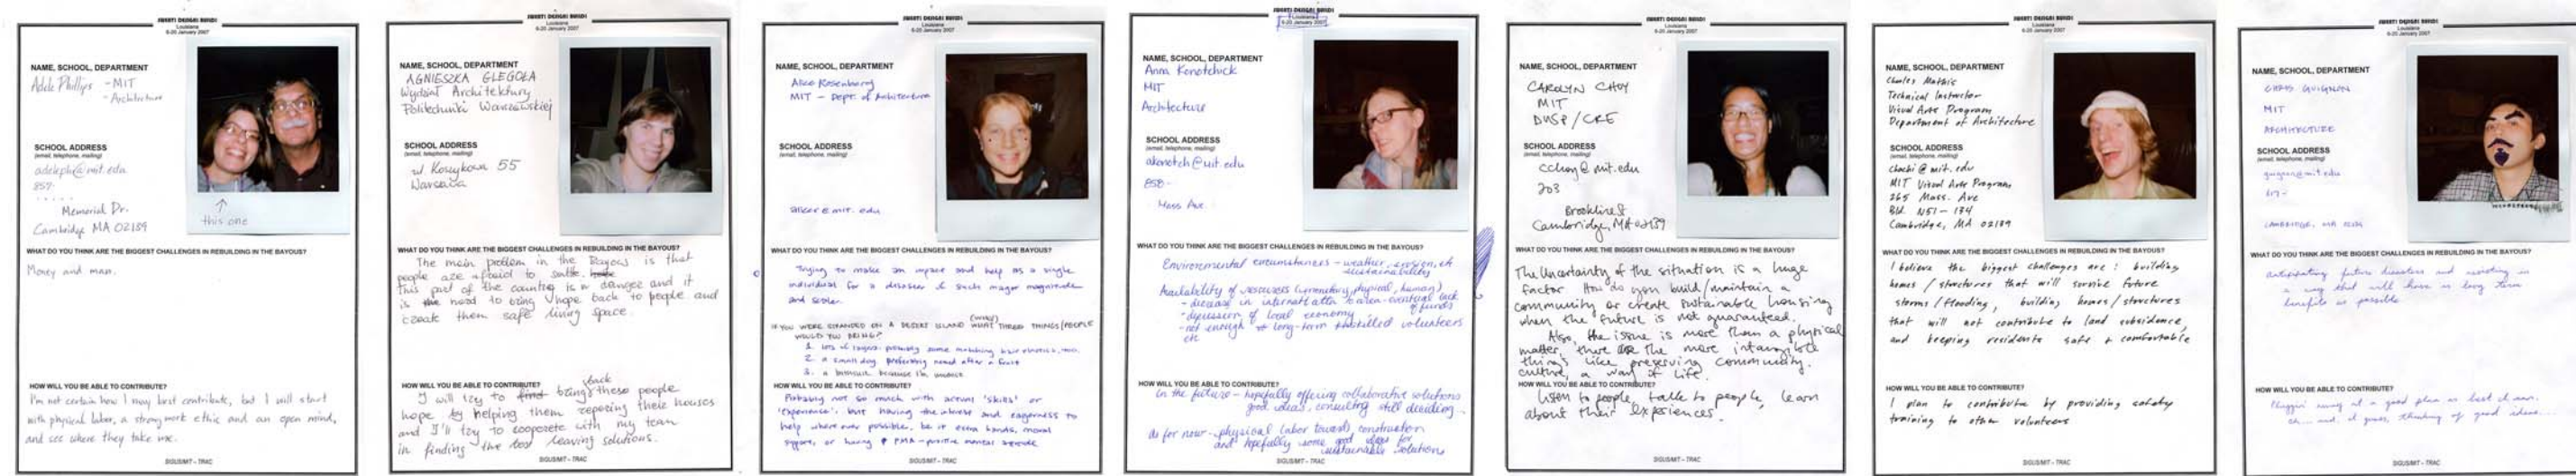 Louisiana
6-20 January 2007
NAME, SCHOOL, DEPARTMENT
Adele Phillips - MIT
- Architecture
SCHOOL ADDRESS
(email, telephone, mailing)
adeleph@mit.edu
857-
Memorial Dr.
Cambridge MA 02139
this one
WHAT DO YOU THINK ARE THE BIGGEST CHALLENGES IN REBUILDING IN THE BAYOUS?
Money and man.
HOW WILL YOU BE ABLE TO CONTRIBUTE?
I'm not certain how I may best contribute, but I will start
with physical labor, a strong work ethic and an open mind,
and see where they take me.
SIGUS/MIT - TRAC
Louisiana
6-20 January 2007
NAME, SCHOOL, DEPARTMENT
AGNIESZKA GLEGOŁA
Wydział Architektury
Politechniki Warszawskiej
SCHOOL ADDRESS
(email, telephone, mailing)
ul. Koszykowa 55
Warszawa
WHAT DO YOU THINK ARE THE BIGGEST CHALLENGES IN REBUILDING IN THE BAYOUS?
The main problem in the Bayous is that
people are afraid to settle.
This part of the country is in danger and it
is need to bring hope back to people and
create them safe living space.
HOW WILL YOU BE ABLE TO CONTRIBUTE?
I will try to find bring back these people
hope by helping them reparing their houses
and I'll try to cooperate with my team
in finding the best leaving solutions.
SIGUS/MIT - TRAC
Louisiana
6-20 January 2007
NAME, SCHOOL, DEPARTMENT
Alice Rosenberg
MIT - Dept. of Architecture
SCHOOL ADDRESS
(email, telephone, mailing)
@mit.edu
WHAT DO YOU THINK ARE THE BIGGEST CHALLENGES IN REBUILDING IN THE BAYOUS?
Trying to make an impact and help as a single
individual for a disaster of such major magnitude
and scale.
IF YOU WERE STRANDED ON A DESERT ISLAND WHAT THREE THINGS/PEOPLE
WOULD YOU BRING?
1. lots of
2. a small dog, preferably named after a fruit
3. a because I'm
HOW WILL YOU BE ABLE TO CONTRIBUTE?
Probably not so much with actual 'skills' or
'experience', but having the interest and eagerness to
help where ever possible, be it extra hands, moral
support, or having PMA - positive mental attitude
SIGUS/MIT - TRAC
Louisiana
6-20 January 2007
NAME, SCHOOL, DEPARTMENT
Anna Kenotchick
MIT
Architecture
SCHOOL ADDRESS
(email, telephone, mailing)
akenotch@mit.edu
858-
Mass Ave
WHAT DO YOU THINK ARE THE BIGGEST CHALLENGES IN REBUILDING IN THE BAYOUS?
Environmental circumstances - weather, erosion, etc
sustainability
Availability of resources (monetary, physical, human)
- decrease in attn to area - eventual lack
of funds
- depression of local economy
- not enough long-term skilled volunteers
etc
HOW WILL YOU BE ABLE TO CONTRIBUTE?
In the future - hopefully offering collaborative solutions
good ideas, consulting still deciding...
As for now - physical labor towards construction
and hopefully some good ideas for
sustainable solutions
SIGUS/MIT - TRAC
Louisiana
6-20 January 2007
NAME, SCHOOL, DEPARTMENT
CAROLYN CHOY
MIT
DUSP/CRE
SCHOOL ADDRESS
(email, telephone, mailing)
cchoy@mit.edu
203
Brookline St
Cambridge, MA 02139
WHAT DO YOU THINK ARE THE BIGGEST CHALLENGES IN REBUILDING IN THE BAYOUS?
The Uncertainty of the situation is a huge
factor. How do you build/maintain a
community or create sustainable housing
when the future is not guaranteed.
Also, the issue is more than a physical
matter, there are the more intangible
things like preserving community,
culture, a way of life.
HOW WILL YOU BE ABLE TO CONTRIBUTE?
Listen to people, talk to people, learn
about their experiences.
SIGUS/MIT - TRAC
Louisiana
6-20 January 2007
NAME, SCHOOL, DEPARTMENT
Charles Mathis
Technical Instructor
Visual Arts Program
Department of Architecture
SCHOOL ADDRESS
(email, telephone, mailing)
chachi@mit.edu
MIT Visual Arts Program
265 Mass. Ave
Bld. N51-134
Cambridge, MA 02139
WHAT DO YOU THINK ARE THE BIGGEST CHALLENGES IN REBUILDING IN THE BAYOUS?
I believe the biggest challenges are: building
homes/structures that will survive future
storms/flooding, building homes/structures
that will not contribute to land subsidence,
and keeping residents safe + comfortable
HOW WILL YOU BE ABLE TO CONTRIBUTE?
I plan to contribute by providing safety
training to other volunteers
SIGUS/MIT - TRAC
Louisiana
6-20 January 2007
NAME, SCHOOL, DEPARTMENT
CHRIS GUIGNON
MIT
ARCHITECTURE
SCHOOL ADDRESS
(email, telephone, mailing)
guignon@mit.edu
617-
CAMBRIDGE, MA
WHAT DO YOU THINK ARE THE BIGGEST CHALLENGES IN REBUILDING IN THE BAYOUS?
anticipating future disasters and in
a way that will have as long term
benefits as possible
HOW WILL YOU BE ABLE TO CONTRIBUTE?
Pluggin' away at a good plan as best I can.
oh... and, I guess, thinking of good ideas...
SIGUS/MIT - TRAC